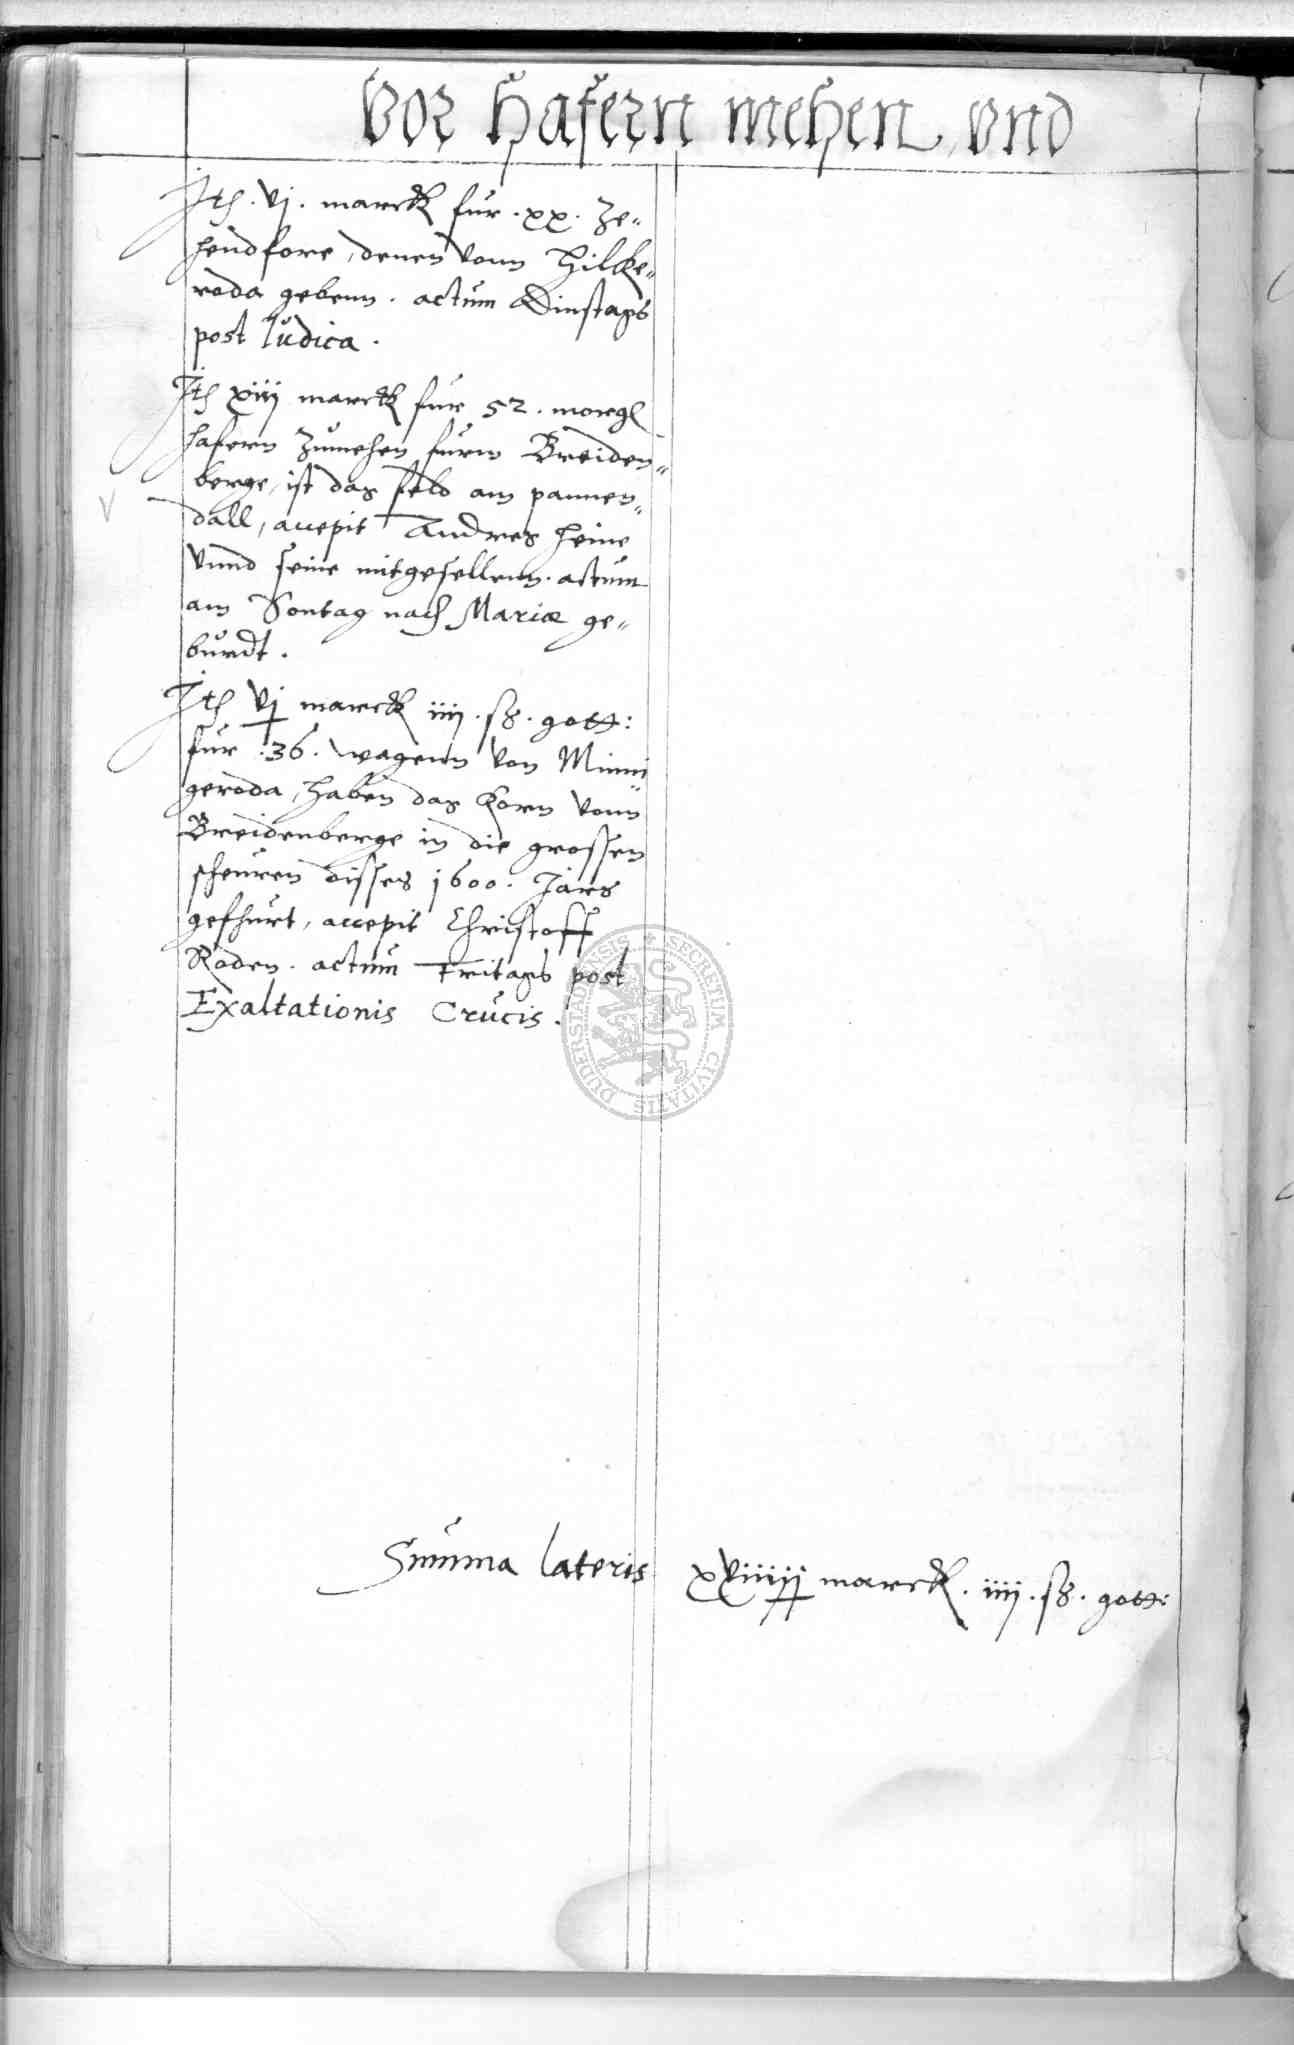 Vor Hafern mehen vnd
Ith. vj. marck fur .xx. ze„
hendfore, denen vonn Hilke„
roda gebenn. actum Dinstags
post Judica.
Ith xiiij marck fur 52. morgl
hafern zumehen furm Breiden„
berge, ist das feld am pannen„
dall, accepit Andres Heine
vnnd seine mitgesellenn. actum
am Sontag nach Mariæ ge„
burdt.
Ith vj marck iiij. ß. gott:
fur .36. wagenn von Minni„
geroda, haben das korn vom
Breidenberge in die grossen
scheuren disses 1600. Jars
gefhurt, accepit Christoff
Roden. actum Fritags post
Exaltationis Crucis.
DUDERSTADENSIS SECRETUM CIVITATIS
Summa lateris marck. iiij. ß. gott: